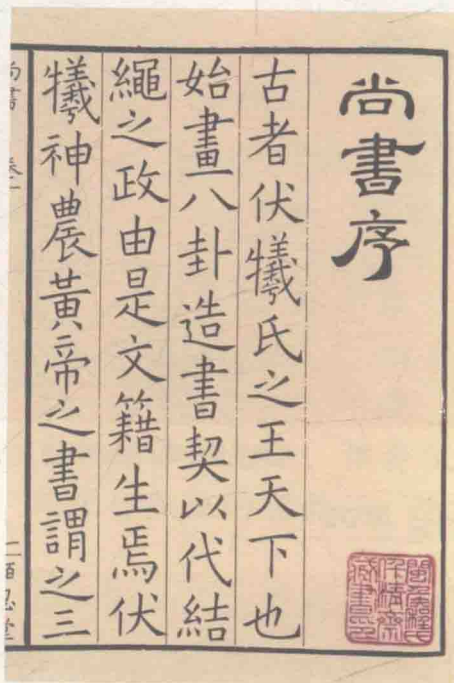 尚書序
古者伏犧氏之王天下也
始畫八卦造書契以代結
繩之政由是文籍生焉伏
犧神農黃帝之書謂之三
尚書